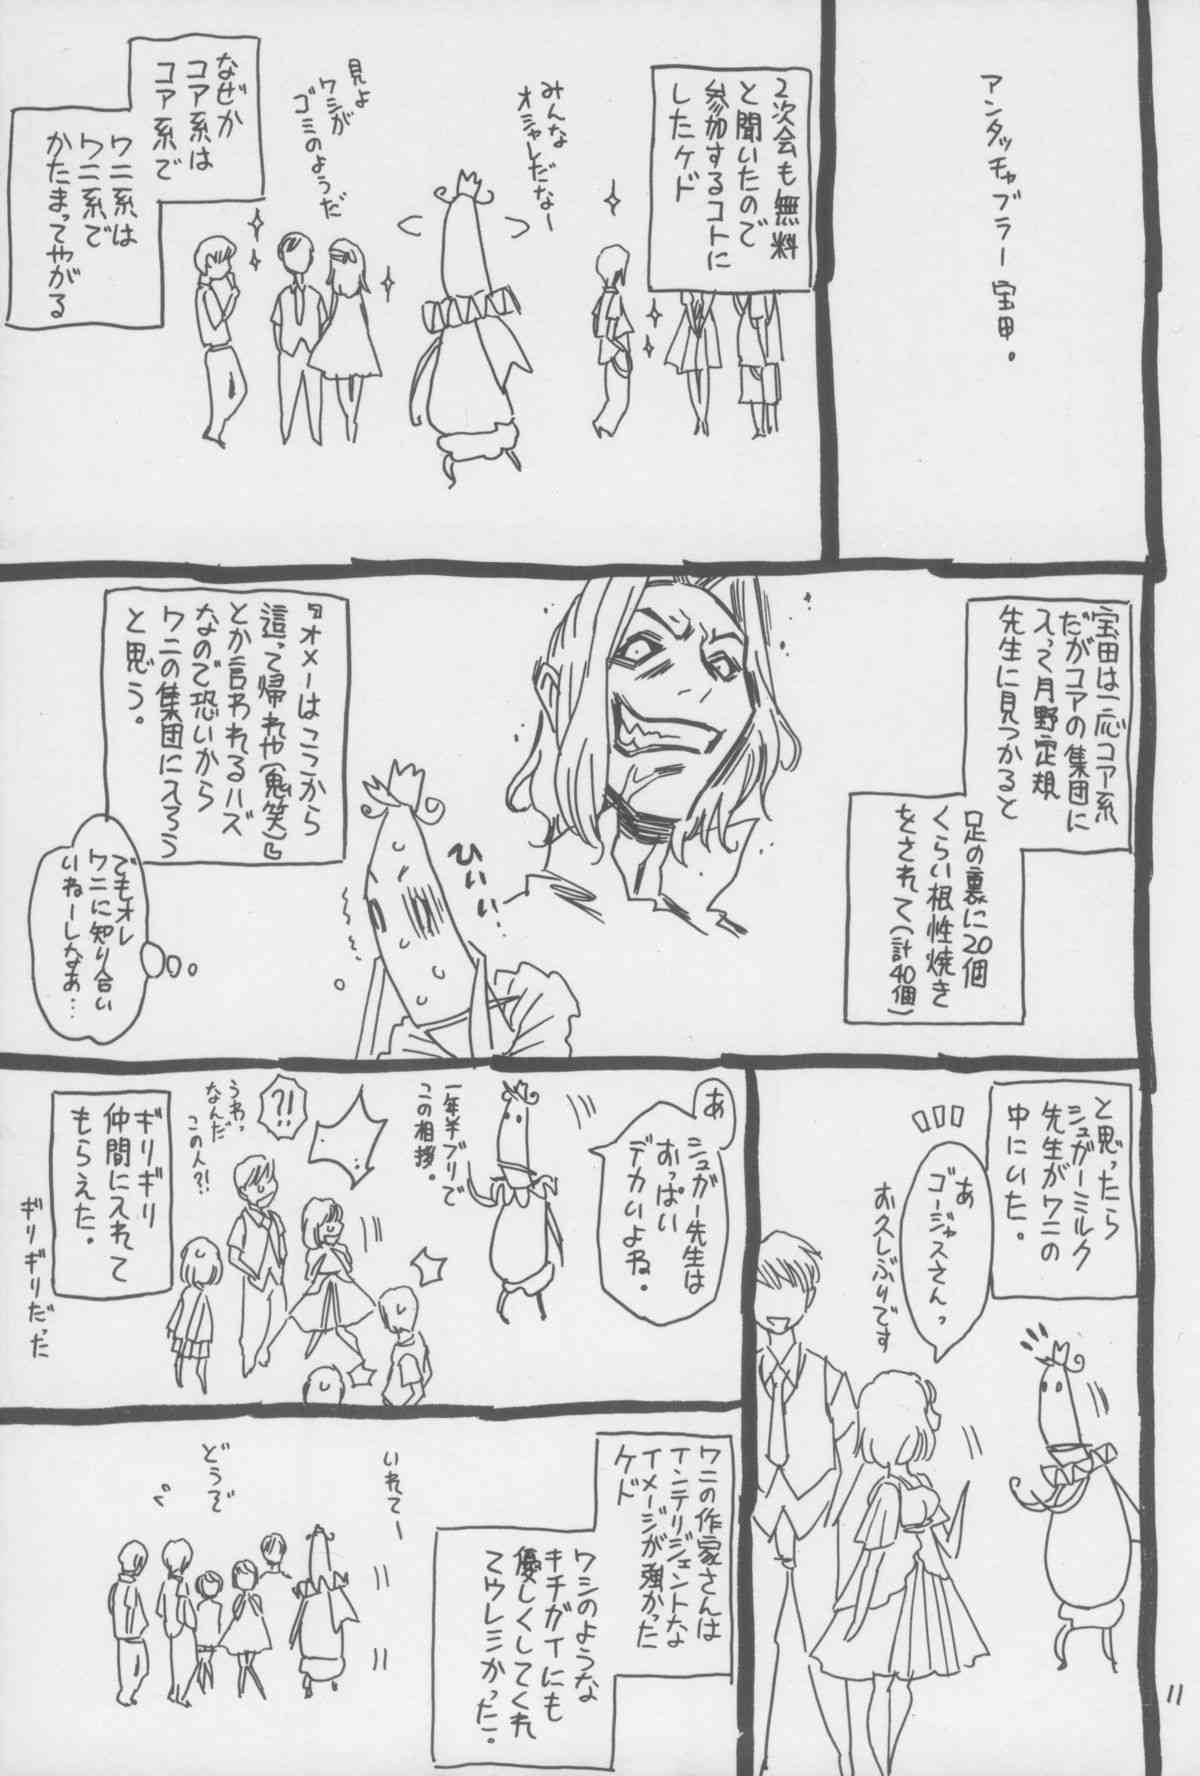 アンタッチャブラー宝田。
2次会も無料
と聞いたので
参加するコトに
したケド
みんな
オシャレだなー
見よ
ワシが
ゴミのようだ
なぜか
コア系は
コア系で
ワニ系は
ワニ系で
かたまってやがる
宝田は一応コア系
だがコアの集団に
入って月野定規
先生に見つかると
足の裏に20個
くらい根性焼き
をされて(計40個)
『オメーはここから
這って帰れや(鬼笑)』
とか言われるハズ
なので恐いから
ワニの集団に入ろう
と思う。
ひぃぃ!
でもオレ
ワニに知り合い
いねーしなぁ…
と思ったら
シュガーミルク
先生がワニの
中にいた。
あ
ゴージャスさんっ
お久しぶりです
あ
シュガー先生は
おっぱい
デカいよね。
一年半ブリで
この相拶。
?!
うわっ
なんだ
この人?!
ギリギリ
仲間に入れて
もらえた。
ギリギリだった
ワニの作家さんは
インテリジェントな
イメージが強かった
ケド
ワシのような
キチガイにも
優しくしてくれ
てウレシかった。
いれてー
どうぞ
11